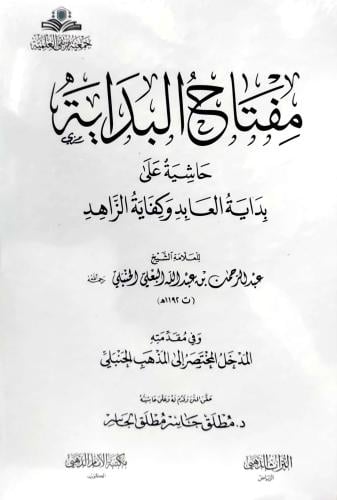 جمعية مرتقى العلمية
مِفْتَاحُ البِدَايَةِ
حَاشِيَةٌ عَلَى
بِدَايَةُ العَابِدِ وَكِفَايَةُ الزَّاهِدِ
لِلعَلَّامَةِ الشَّيْخِ
عبد الرحمن بن عبد الله البعلي الحنبلي رحمه الله
(ت ١١٩٢هـ)
وَفِي مُقَدِّمَتِهِ
المَدْخَلُ المُخْتَصَرُ إِلَى المَذْهَبِ الحَنْبَلِي
حَقَّقَ المَتْنَ وَقَدَّمَ لَهُ وَعَلَّقَ حَاشِيَتَهُ
د. مُطْلَق جَاسِر مُطْلَق الجَاسِر
التراث الذهبي
الرياض
مكتبة الإمام الذهبي
الكويت